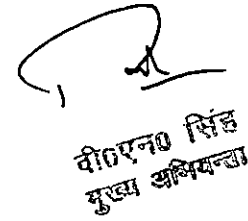 वी०एन० सिंह
मुख्य अभियन्ता